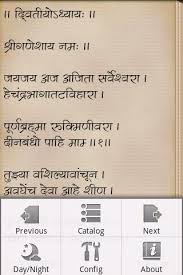 ॥ द्वितीयोऽध्यायः ॥
श्रीगणेशाय नमः ॥
जयजय अज अजिता सर्वेश्वरा ।
हेचंद्रभागातटविहारा ।
पूर्णब्रह्मा रुक्मिणीवरा ।
दीनबंधो पाहि माम ॥१॥
तुझ्या वशिल्यावाचून ।
अवघेंच देवा आहे शीण ।
Previous Catalog Next
Day/Night Config About